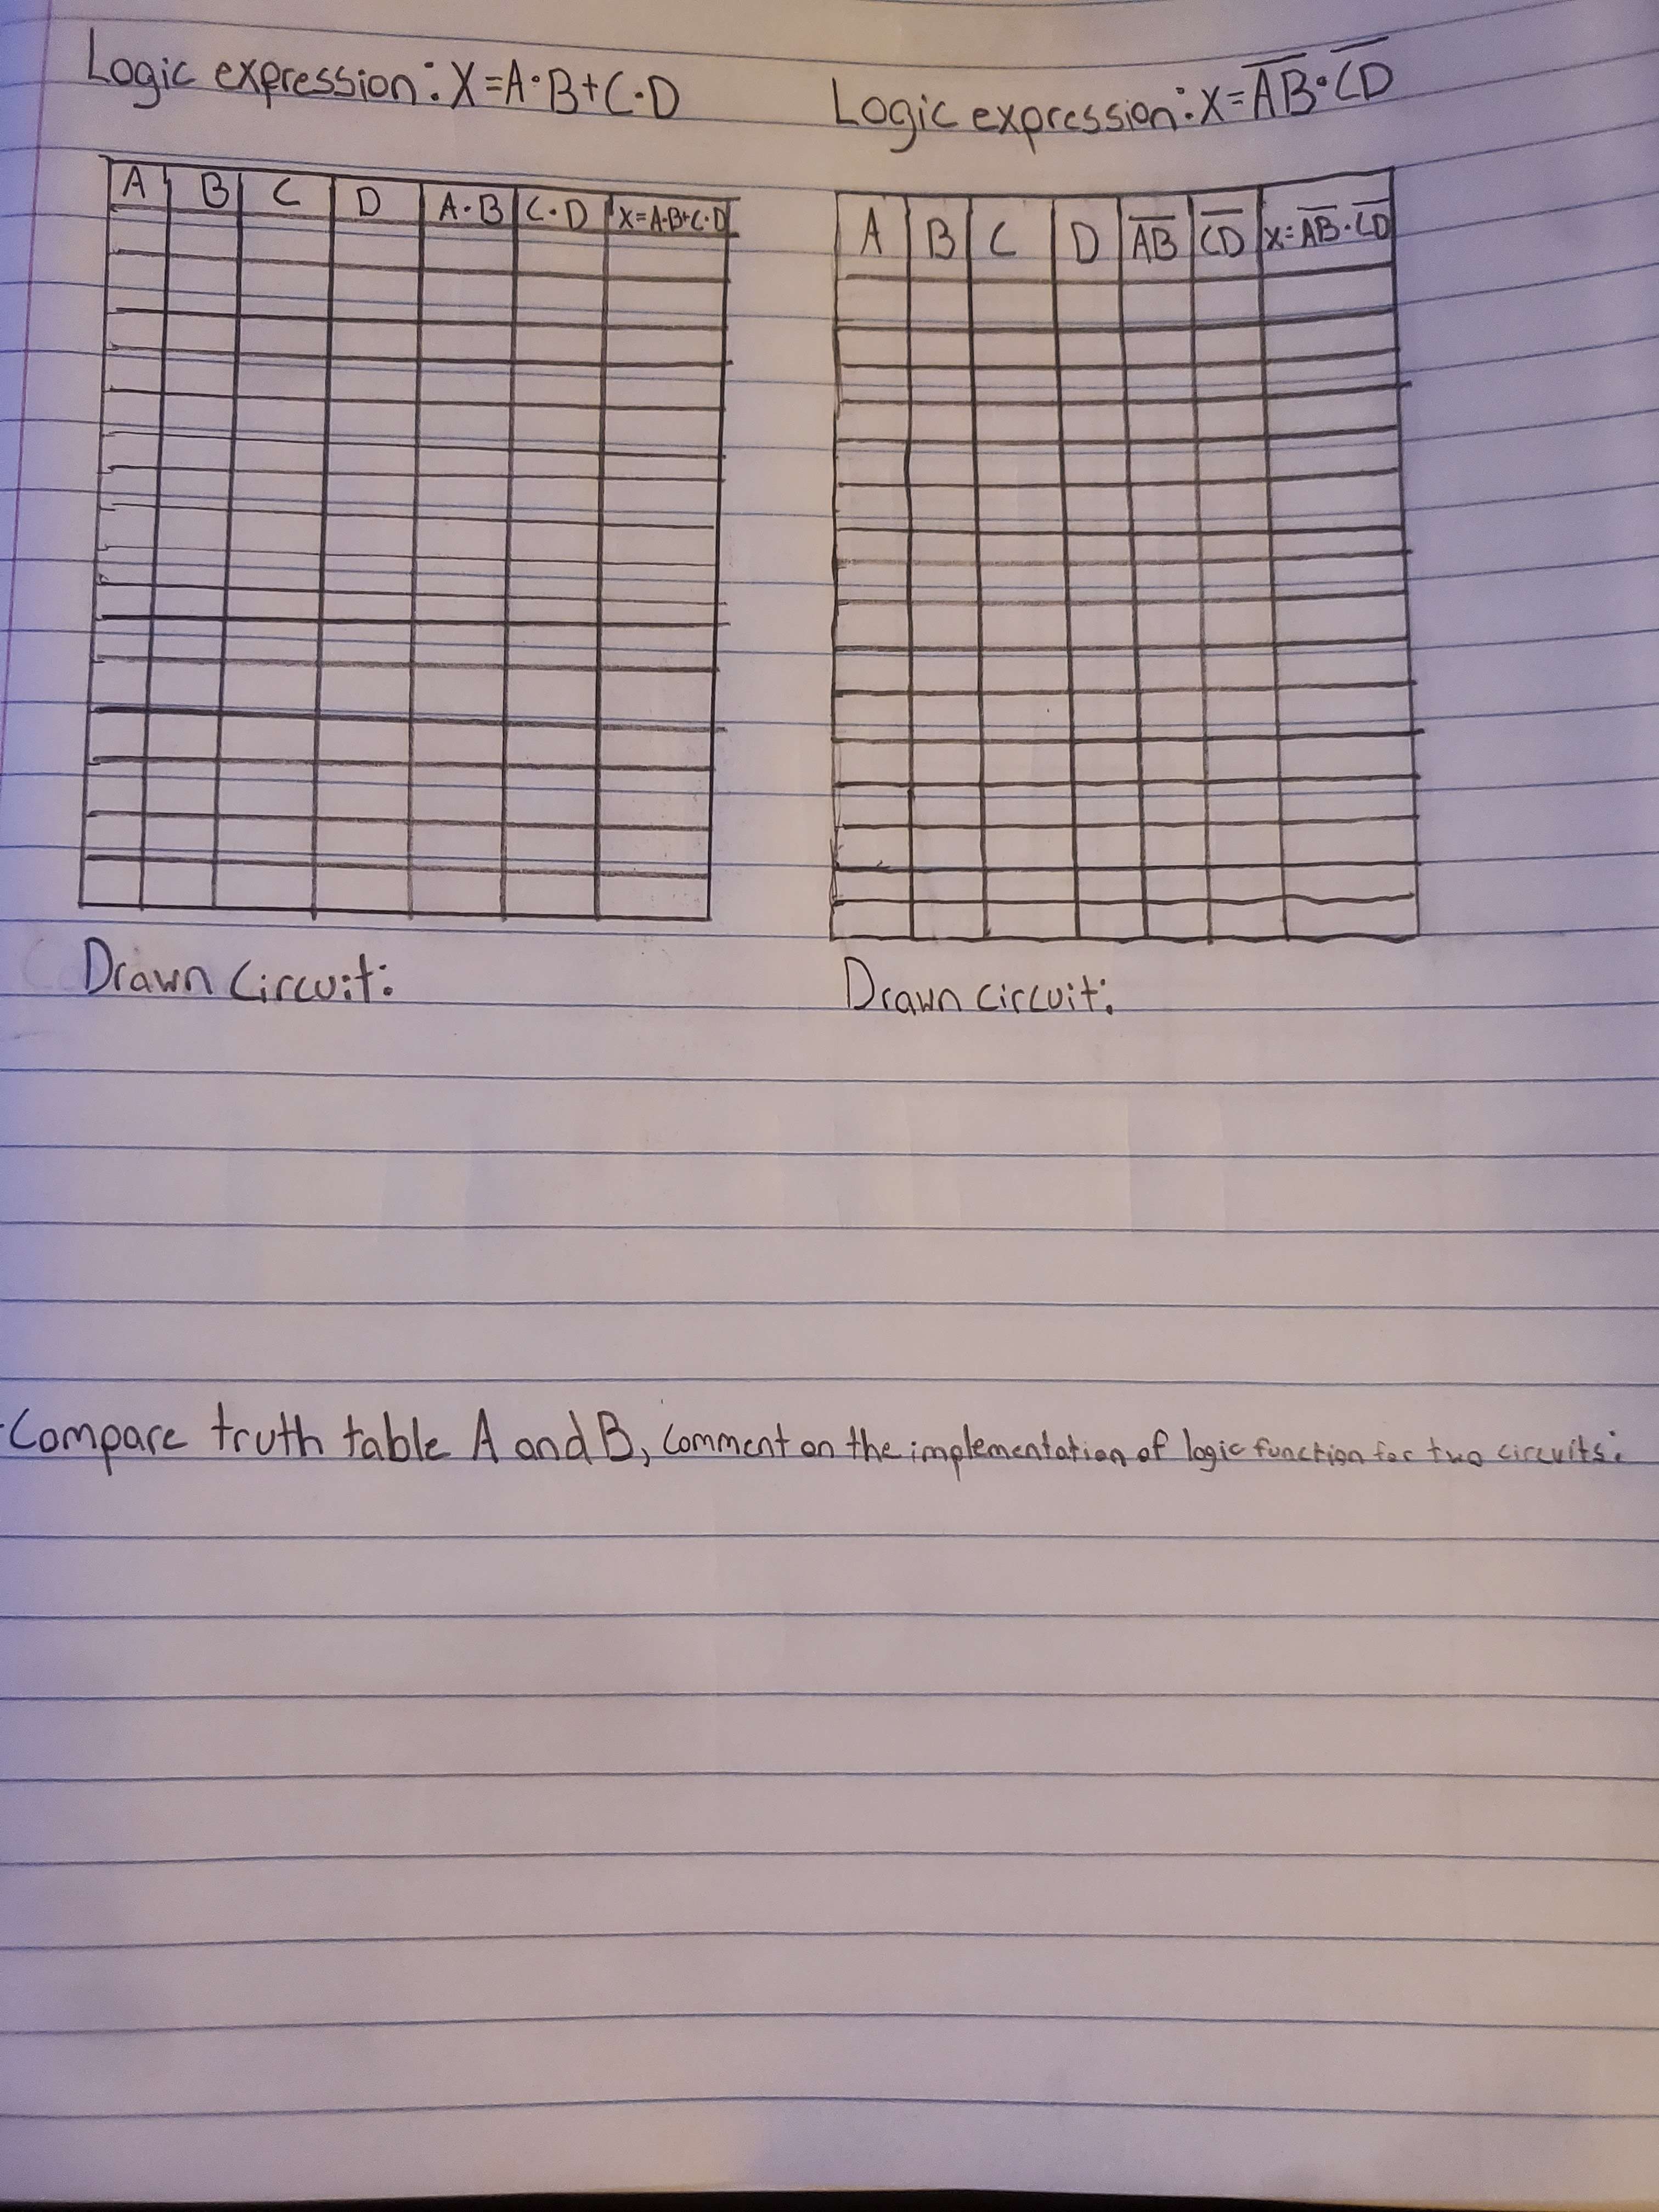 Logic expression: X=A·B+C·D
A B C D A·B C·D X=A·B+C·D
Drawn Circuit:
Logic expression: X=A̅B̅·C̅D̅
A B C D A̅B̅ C̅D̅ X=A̅B̅·C̅D̅
Drawn circuit:
Compare truth table A and B, comment on the implementation of logic function for two circuits: